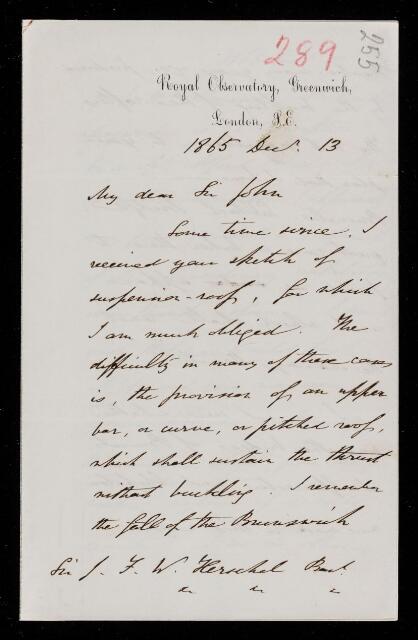 289
255
Royal Observatory, Greenwich,
London, S.E.
1865 Decr. 13
My dear Sir John
Some time since, I
received your sketch of
suspension-roof, for which
I am much obliged. The
difficulty in many of these cases
is, the provision of an upper
bar, or curve, or pitched roof,
which shall sustain the thrust
without buckling. I remember
the fall of the Brunswick
Sir J. F. W. Herschel Bart.